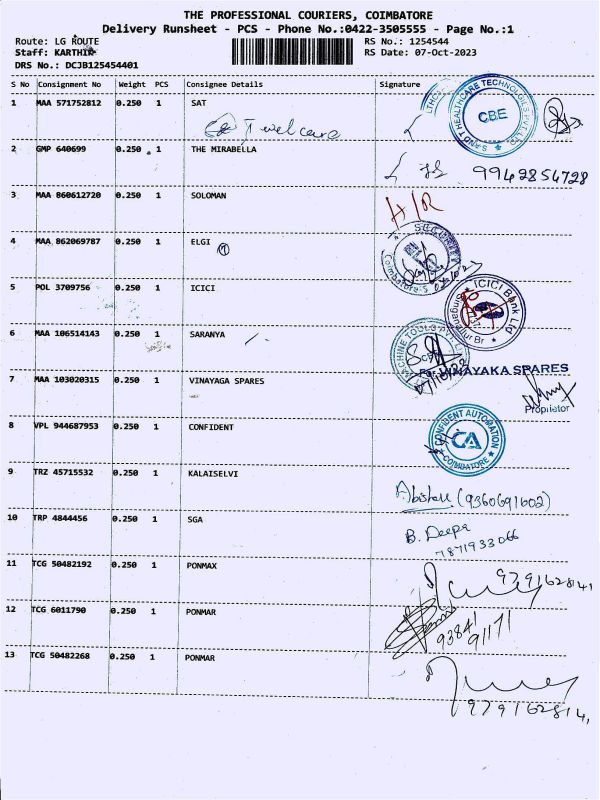 THE PROFESSIONAL COURIERS, COIMBATORE
Delivery Runsheet - PCS - Phone No.:0422-3505555 - Page No.:1
Route: LG ROUTE RS No.: 1254544
Staff: KARTHIK RS Date: 07-Oct-2023
DRS No.: DCJB125454401
S No Consignment No Weight PCS Consignee Details Signature
1 MAA 571752812 0.250 1 SAT
welcare
CBE
2 GMP 640699 0.250 1 THE MIRABELLA
9942854728
3 MAA 860612720 0.250 1 SOLOMAN
H/R
SECURITY
4 MAA 862069787 0.250 1 ELGI
Coimbatore-5
5 POL 3709756 0.250 1 ICICI
ICICI Bank
Singanallur Br
6 MAA 106514143 0.250 1 SARANYA
MACHINE TOOLS
For VINAYAKA SPARES
7 MAA 103020315 0.250 1 VINAYAGA SPARES
Proprietor
8 VPL 944687953 0.250 1 CONFIDENT
CONFIDENT AUTOMATION
CA
COIMBATORE
9 TRZ 45715532 0.250 1 KALAISELVI
(9360691602)
10 TRP 4844456 0.250 1 SGA
B. Deepa
7871933066
11 TCG 50482192 0.250 1 PONMAX
9791628141
12 TCG 6011790 0.250 1 PONMAR
93841
91171
13 TCG 50482268 0.250 1 PONMAR
9791628141